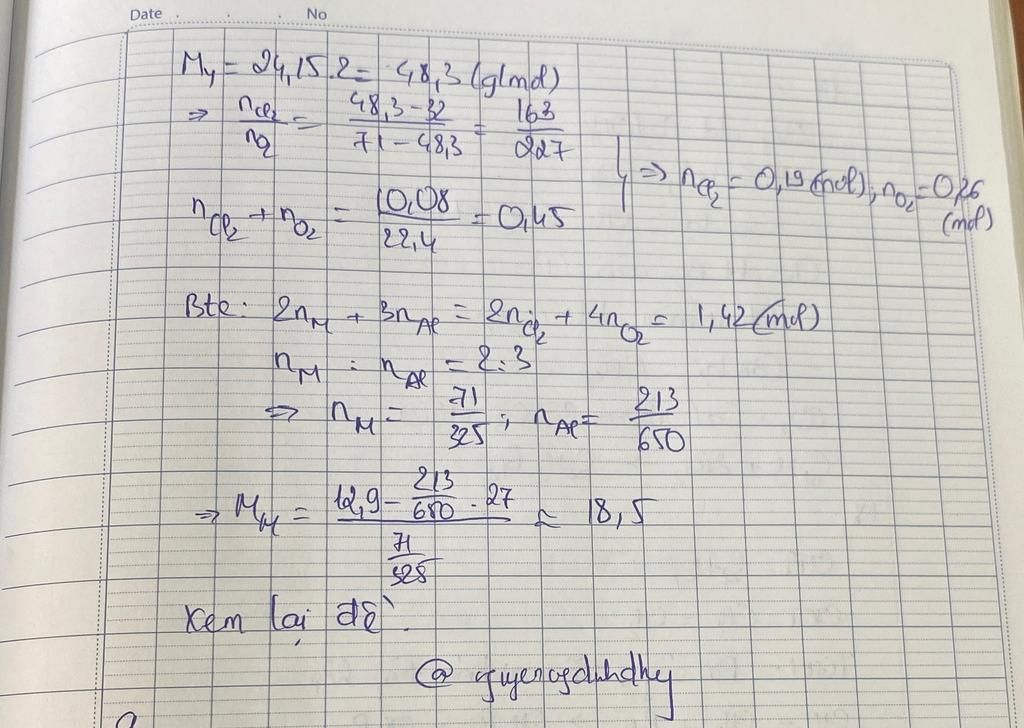 Date . . . No
M_Y = 24,15.2 = 48,3 (g/mol)
⇒ n_Cl2 / n_O2 = (48,3 - 32) / (71 - 48,3) = 163/227
n_Cl2 + n_O2 = 10,08 / 22,4 = 0,45 } ⇒ n_Cl2 = 0,19 (mol); n_O2 = 0,26 (mol)
Bte: 2n_M + 3n_Al = 2n_Cl2 + 4n_O2 = 1,42 (mol)
n_M : n_Al = 2:3
⇒ n_M = 71/325 ; n_Al = 213/650
⇒ M_M = (12,9 - 213/650 . 27) / (71/325) ≈ 18,5
Xem lại đề